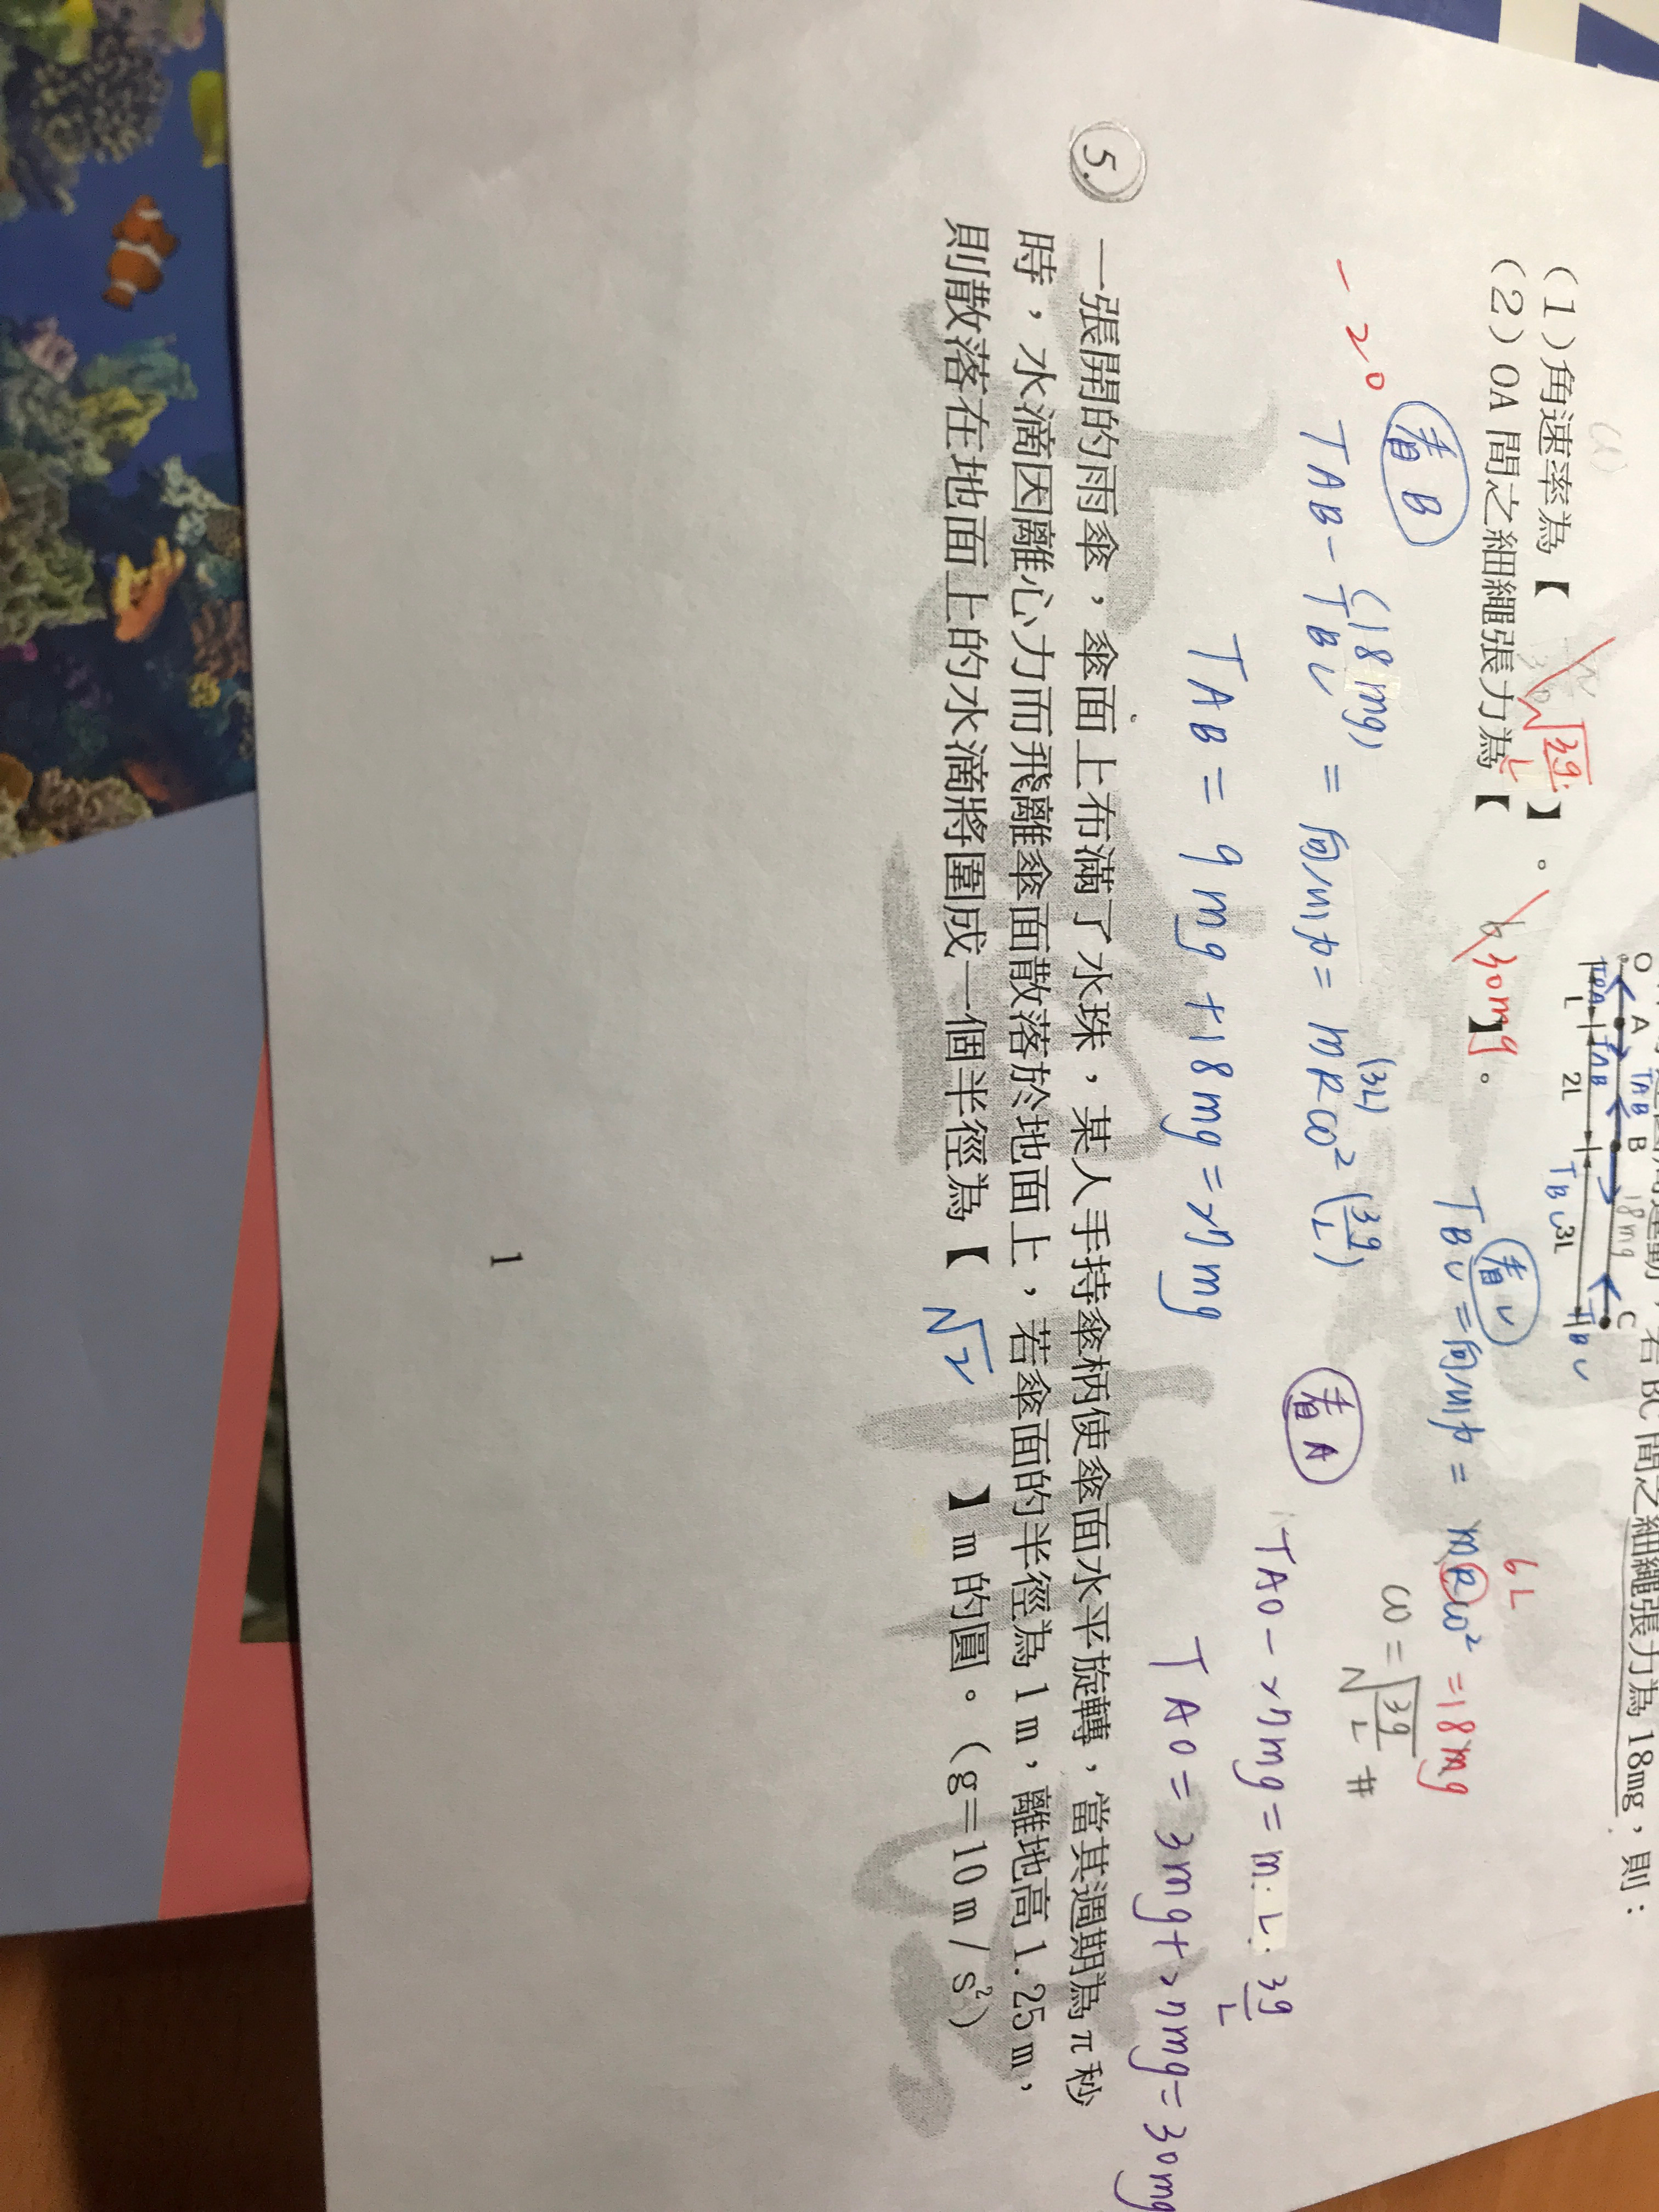 者 BC 間之細繩張力為 18mg，則：
O A B 18mg C
TOA TAB TAB TBC TBC
L 2L 3L
(1)角速率為【 √3g/L 】。
(2)OA 間之細繩張力為【 30mg 】。
看C
6L
TBC = 向心力 = mRω² = 18mg
ω = √3g/L #
-20
看B
(18mg) (3L)
TAB - TBC = 向心力 = mRω² (3g/L)
TAB = 9mg + 18mg = 27mg
看A
TAO - 27mg = m · L · 3g/L
TAO = 3mg + 27mg = 30mg
5. 一張開的雨傘，傘面上布滿了水珠，某人手持傘柄使傘面水平旋轉，當其週期為π秒
時，水滴因離心力而飛離傘面散落於地面上，若傘面的半徑為 1 m，離地高 1.25 m，
則散落在地面上的水滴將圍成一個半徑為【 √2 】m 的圓。(g=10 m / s²)
1